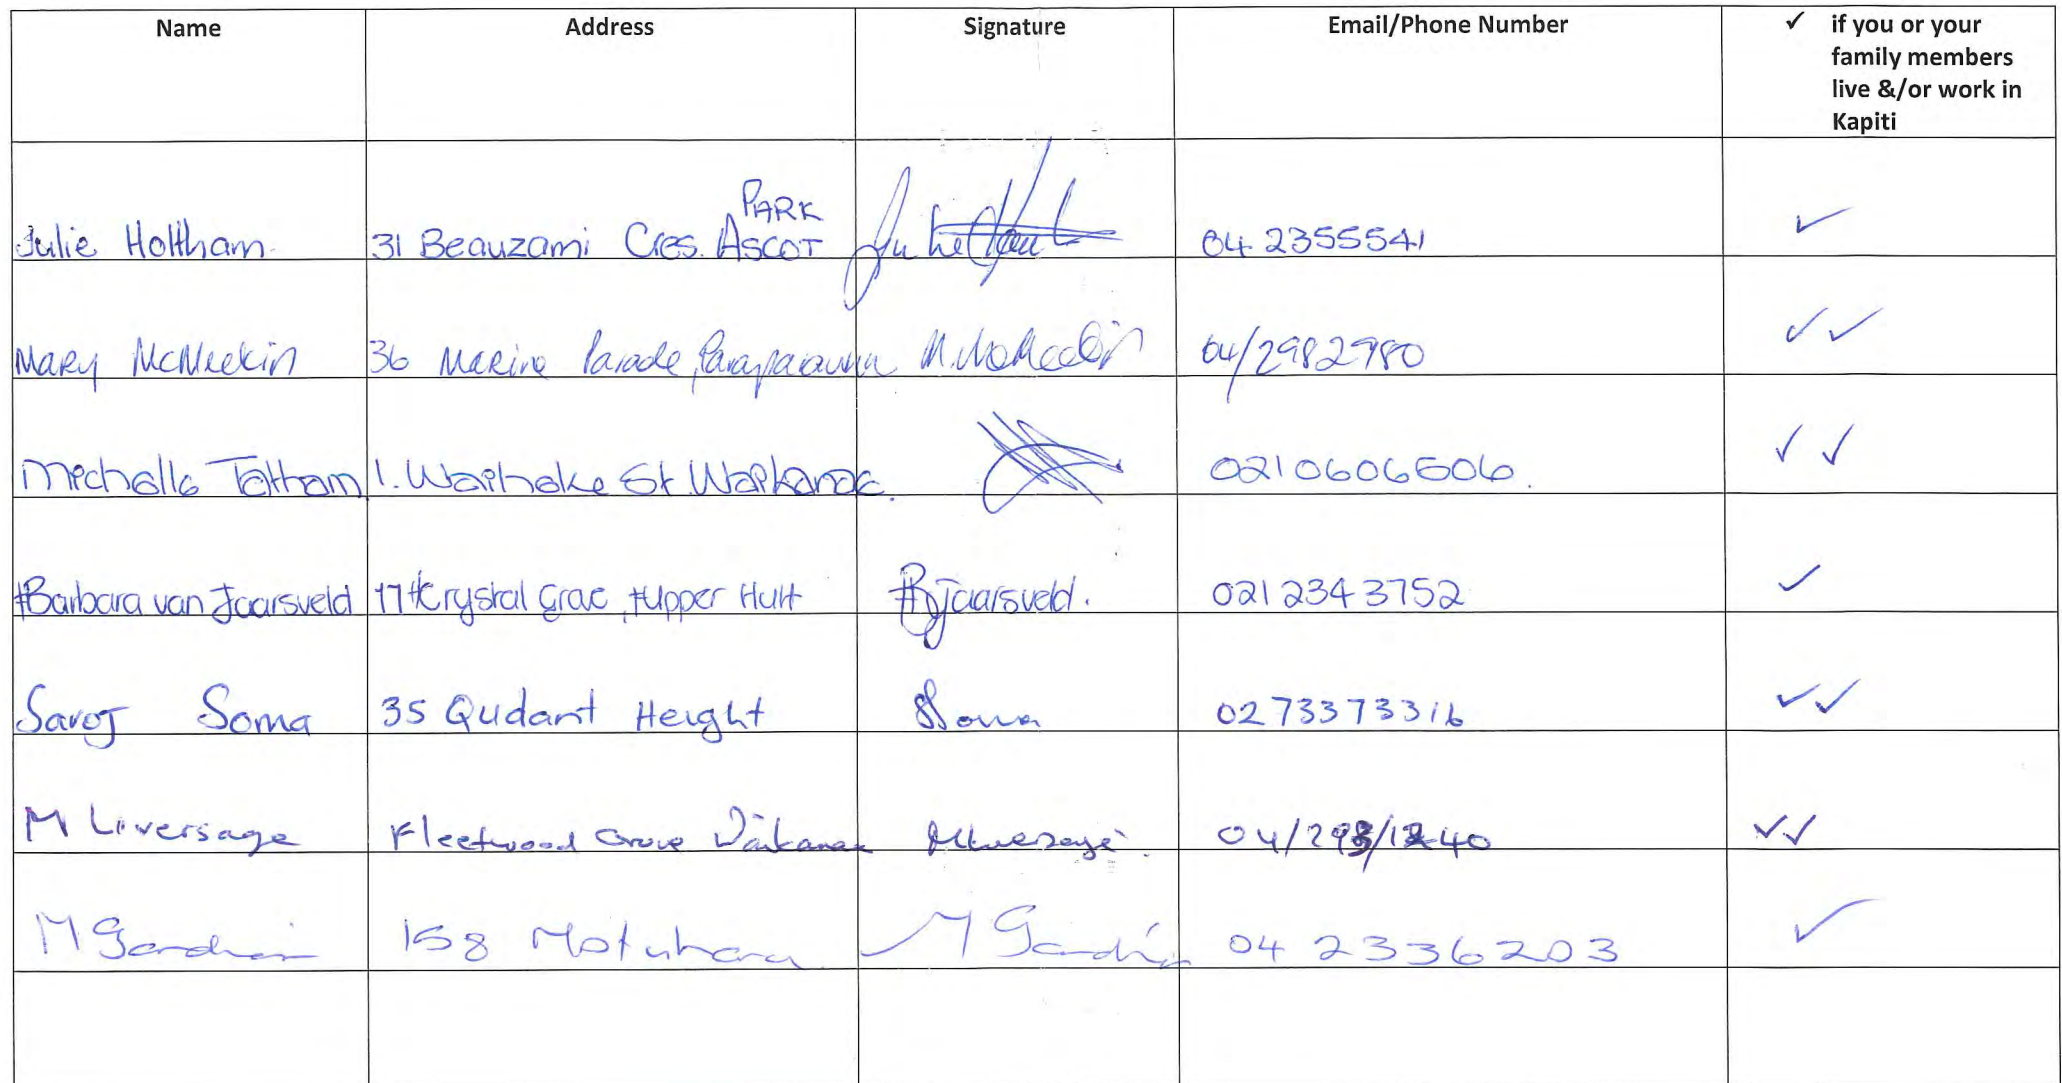 Name Address Signature Email/Phone Number ✓ if you or your
family members
live &/or work in
Kapiti
Julie Holtham 31 Beauzami Cres. Ascot PARK 04 2355541 ✓
Mary McMeekin 36 Marine Parade, Paraparaumu M. McMeekin 04/2982980 ✓✓
Michelle Tatham 1. Waiheke St Waikanae. 0210606606. ✓ ✓
Barbara van Jaarsveld 17 Crystal Grove, Upper Hutt BJaarsveld. 021 2343752 ✓
Saroj Soma 35 Qudant Height SSoma 0273373316 ✓✓
M Liversage Fleetwood Grove Waikanae MLiversage. ✓✓
M 158 Motuhara M 04 2336203 ✓